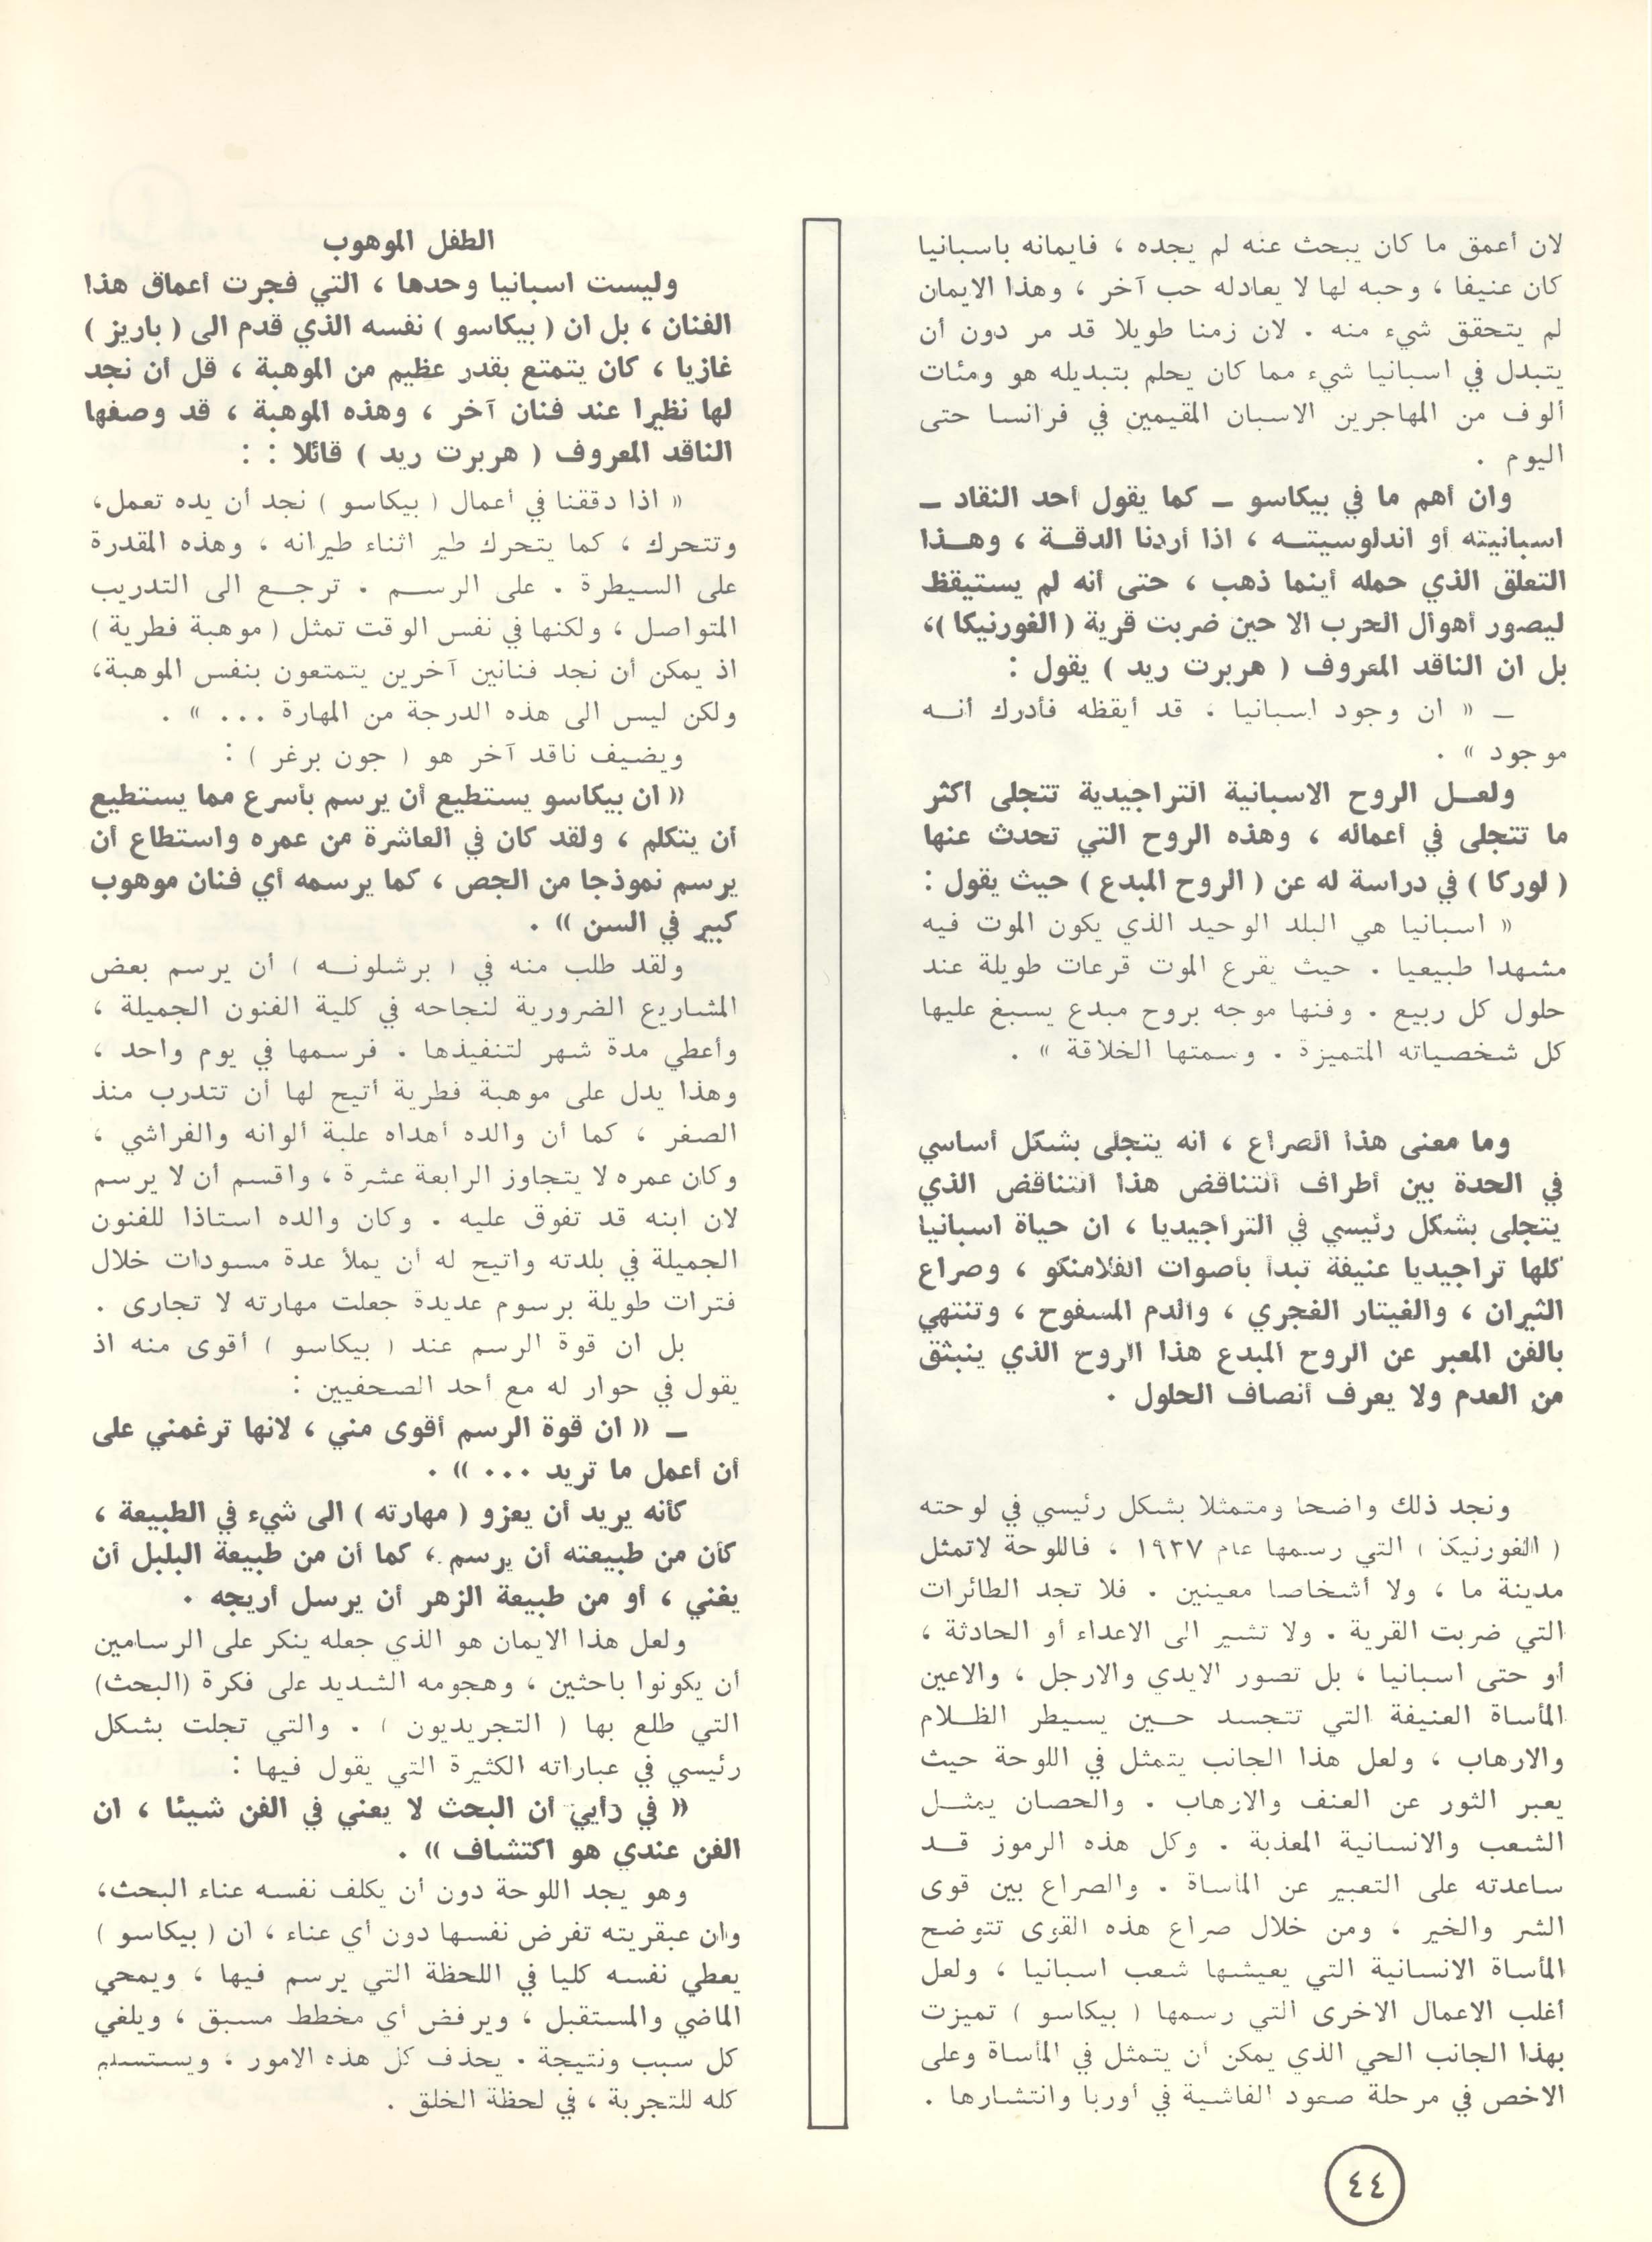 لان أعمق ما كان يبحث عنه لم يجده ، فايمانه باسبانيا
كان عنيفا ، وحبه لها لا يعادله حب آخر ، وهذا الايمان
لم يتحقق شيء منه . لان زمنا طويلا قد مر دون أن
يتبدل في اسبانيا شيء مما كان يحلم بتبديله هو ومئات
ألوف من المهاجرين الاسبان المقيمين في فرانسا حتى
اليوم .
وان أهم ما في بيكاسو – كما يقول أحد النقاد –
اسبانيته أو اندلوسيتــه ، اذا أردنا الدقــة ، وهــذا
التعلق الذي حمله أينما ذهب ، حتى أنه لم يستيقظ
ليصور أهوال الحرب الا حين ضربت قرية ( الغورنيكا )،
بل ان الناقد المعروف ( هربرت ريد ) يقول :
– « ان وجود اسبانيا ، قد أيقظه فأدرك أنــه
موجود » .
ولعــل الروح الاسبانية التراجيدية تتجلى اكثر
ما تتجلى في أعماله ، وهذه الروح التي تحدث عنها
( لوركا ) في دراسة له عن ( الروح المبدع ) حيث يقول :
« اسبانيا هي البلد الوحيد الذي يكون الموت فيه
مشهدا طبيعيا . حيث يقرع الموت قرعات طويلة عند
حلول كل ربيع . وفنها موجه بروح مبدع يسبغ عليها
كل شخصياته المتميزة . وسمتها الخلاقة » .
وما معنى هذا الصراع ، انه يتجلى بشكل أساسي
في الحدة بين أطراف التناقض هذا التناقض الذي
يتجلى بشكل رئيسي في التراجيديا ، ان حياة اسبانيا
كلها تراجيديا عنيفة تبدأ بأصوات الفلامنكو ، وصراع
الثيران ، والغيتار الغجري ، والدم المسفوح ، وتنتهي
بالفن المعبر عن الروح المبدع هذا الروح الذي ينبثق
من العدم ولا يعرف أنصاف الحلول .
ونجد ذلك واضحا ومتمثلا بشكل رئيسي في لوحته
( الغورنيكا ) التي رسمها عام ١٩٣٧ ، فاللوحة لاتمثل
مدينة ما ، ولا أشخاصا معينين . فلا تجد الطائرات
التي ضربت القرية . ولا تشير الى الاعداء أو الحادثة ،
أو حتى اسبانيا ، بل تصور الايدي والارجل ، والاعين
المأساة العنيفة التي تتجسد حــين يسيطر الظــلام
والارهاب ، ولعل هذا الجانب يتمثل في اللوحة حيث
يعبر الثور عن العنف والارهاب . والحصان يمثــل
الشعب والانسانية المعذبة . وكل هذه الرموز قــد
ساعدته على التعبير عن المأساة . والصراع بين قوى
الشر والخير ، ومن خلال صراع هذه القوى تتوضح
المأساة الانسانية التي يعيشها شعب اسبانيا ، ولعل
أغلب الاعمال الاخرى التي رسمها ( بيكاسو ) تميزت
بهذا الجانب الحي الذي يمكن أن يتمثل في المأساة وعلى
الاخص في مرحلة صعود الفاشية في أوربا وانتشارها .
الطفل الموهوب
وليست اسبانيا وحدها ، التي فجرت أعماق هذا
الفنان ، بل ان ( بيكاسو ) نفسه الذي قدم الى ( باريز )
غازيا ، كان يتمتع بقدر عظيم من الموهبة ، قل أن نجد
لها نظيرا عند فنان آخر ، وهذه الموهبة ، قد وصفها
الناقد المعروف ( هربرت ريد ) قائلا : :
« اذا دققنا في أعمال ( بيكاسو ) نجد أن يده تعمل،
وتتحرك ، كما يتحرك طير اثناء طيرانه ، وهذه المقدرة
على السيطرة . على الرســم . ترجــع الى التدريب
المتواصل ، ولكنها في نفس الوقت تمثل ( موهبة فطرية )
اذ يمكن أن نجد فنانين آخرين يتمتعون بنفس الموهبة،
ولكن ليس الى هذه الدرجة من المهارة ... » .
ويضيف ناقد آخر هو ( جون برغر ) :
« ان بيكاسو يستطيع أن يرسم بأسرع مما يستطيع
أن يتكلم ، ولقد كان في العاشرة من عمره واستطاع أن
يرسم نموذجا من الجص ، كما يرسمه أي فنان موهوب
كبير في السن » .
ولقد طلب منه في ( برشلونــه ) أن يرسم بعض
المشاريع الضرورية لنجاحه في كلية الفنون الجميلة ،
وأعطي مدة شهر لتنفيذها . فرسمها في يوم واحد ،
وهذا يدل على موهبة فطرية أتيح لها أن تتدرب منذ
الصغر ، كما أن والده أهداه علبة ألوانه والفراشي ،
وكان عمره لا يتجاوز الرابعة عشرة ، واقسم أن لا يرسم
لان ابنه قد تفوق عليه . وكان والده استاذا للفنون
الجميلة في بلدته واتيح له أن يملأ عدة مسودات خلال
فترات طويلة برسوم عديدة جعلت مهارته لا تجارى .
بل ان قوة الرسم عند ( بيكاسو ) أقوى منه اذ
يقول في حوار له مع أحد الصحفيين :
– « ان قوة الرسم أقوى مني ، لانها ترغمني على
أن أعمل ما تريد ... » .
كأنه يريد أن يعزو ( مهارته ) الى شيء في الطبيعة ،
كأن من طبيعته أن يرسم ، كما أن من طبيعة البلبل أن
يغني ، أو من طبيعة الزهر أن يرسل أريجه .
ولعل هذا الايمان هو الذي جعله ينكر على الرسامين
أن يكونوا باحثين ، وهجومه الشديد على فكرة (البحث)
التي طلع بها ( التجريديون ) . والتي تجلت بشكل
رئيسي في عباراته الكثيرة التي يقول فيها :
« في رأيي أن البحث لا يعني في الفن شيئا ، ان
الفن عندي هو اكتشاف » .
وهو يجد اللوحة دون أن يكلف نفسه عناء البحث،
وان عبقريته تفرض نفسها دون أي عناء ، ان ( بيكاسو )
يعطي نفسه كليا في اللحظة التي يرسم فيها ، ويمحي
الماضي والمستقبل ، ويرفض أي مخطط مسبق ، ويلغي
كل سبب ونتيجة . يحذف كل هذه الامور ، ويستسلم
كله للتجربة ، في لحظة الخلق .
٤٤